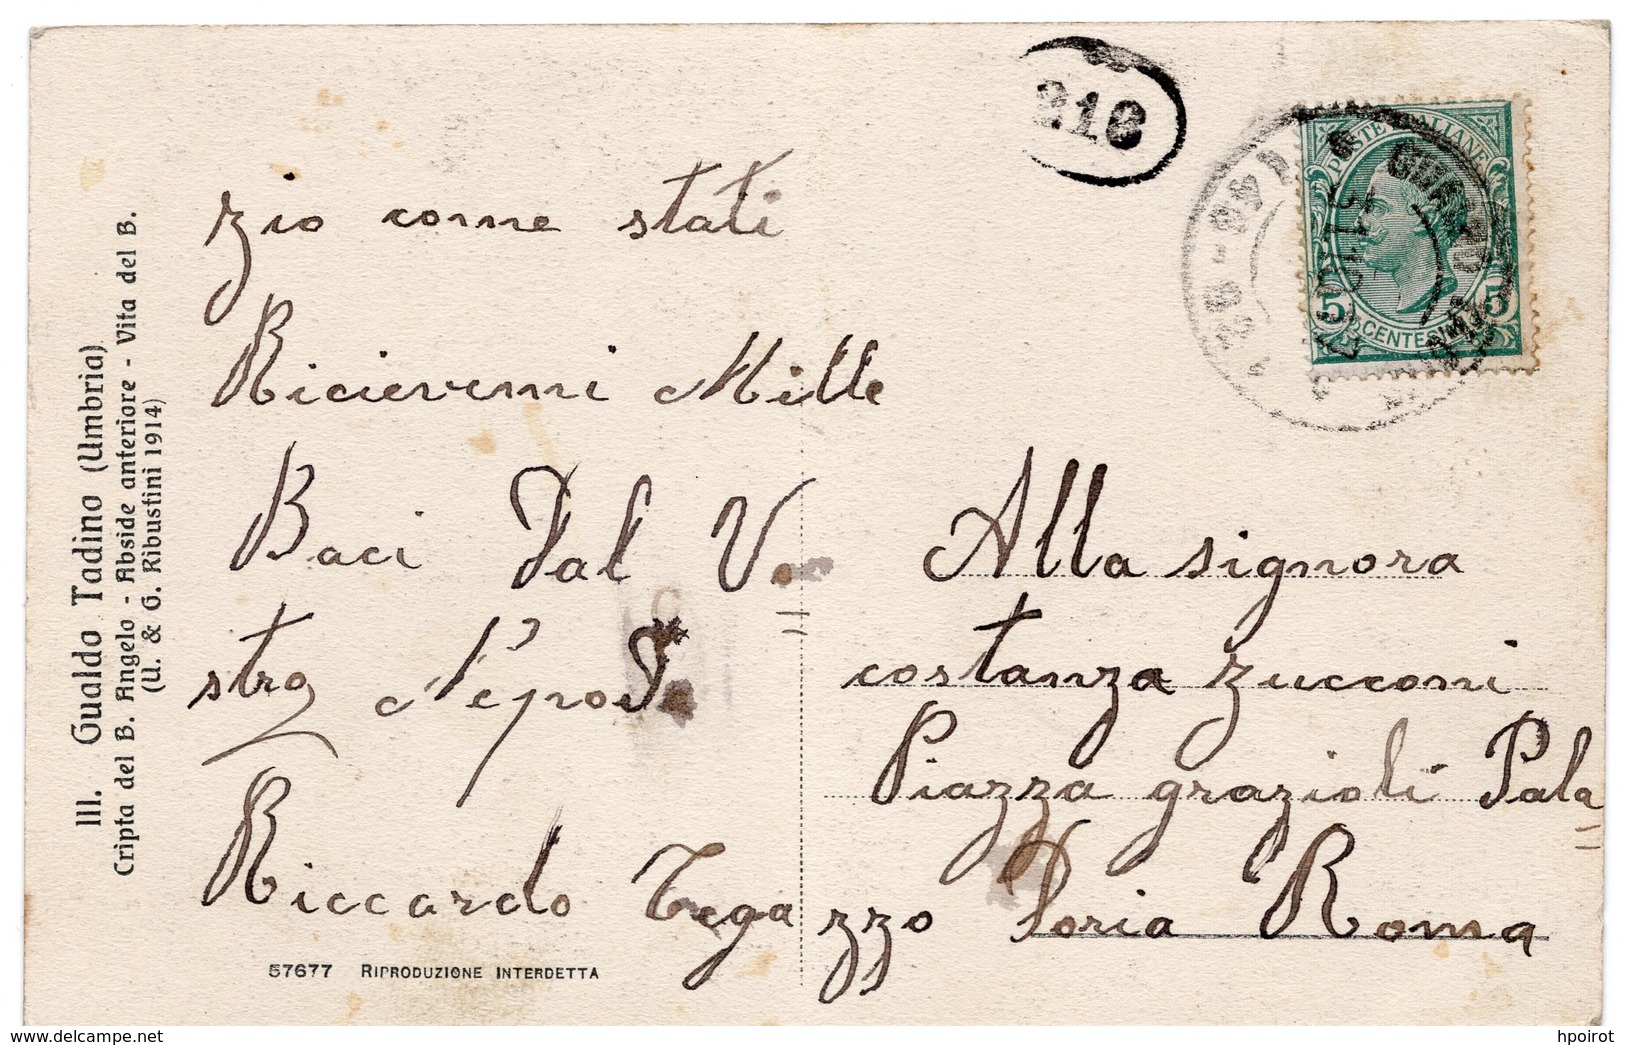 III. Gualdo Tadino (Umbria)
Cripta del B. Angelo - Abside anteriore - Vita del B.
(U. & G. Ribustini 1914)
zio come stati
Ricievemi Mille
Baci Dal V.
strg Nepode
Riccardo Tegazzo
57677 RIPRODUZIONE INTERDETTA
216
POSTE ITALIANE
5 CENTESIMI 5
GUALDO
Alla signora
costanza zucconi
Piazza grazioli Pala
Doria Roma
hpoirot